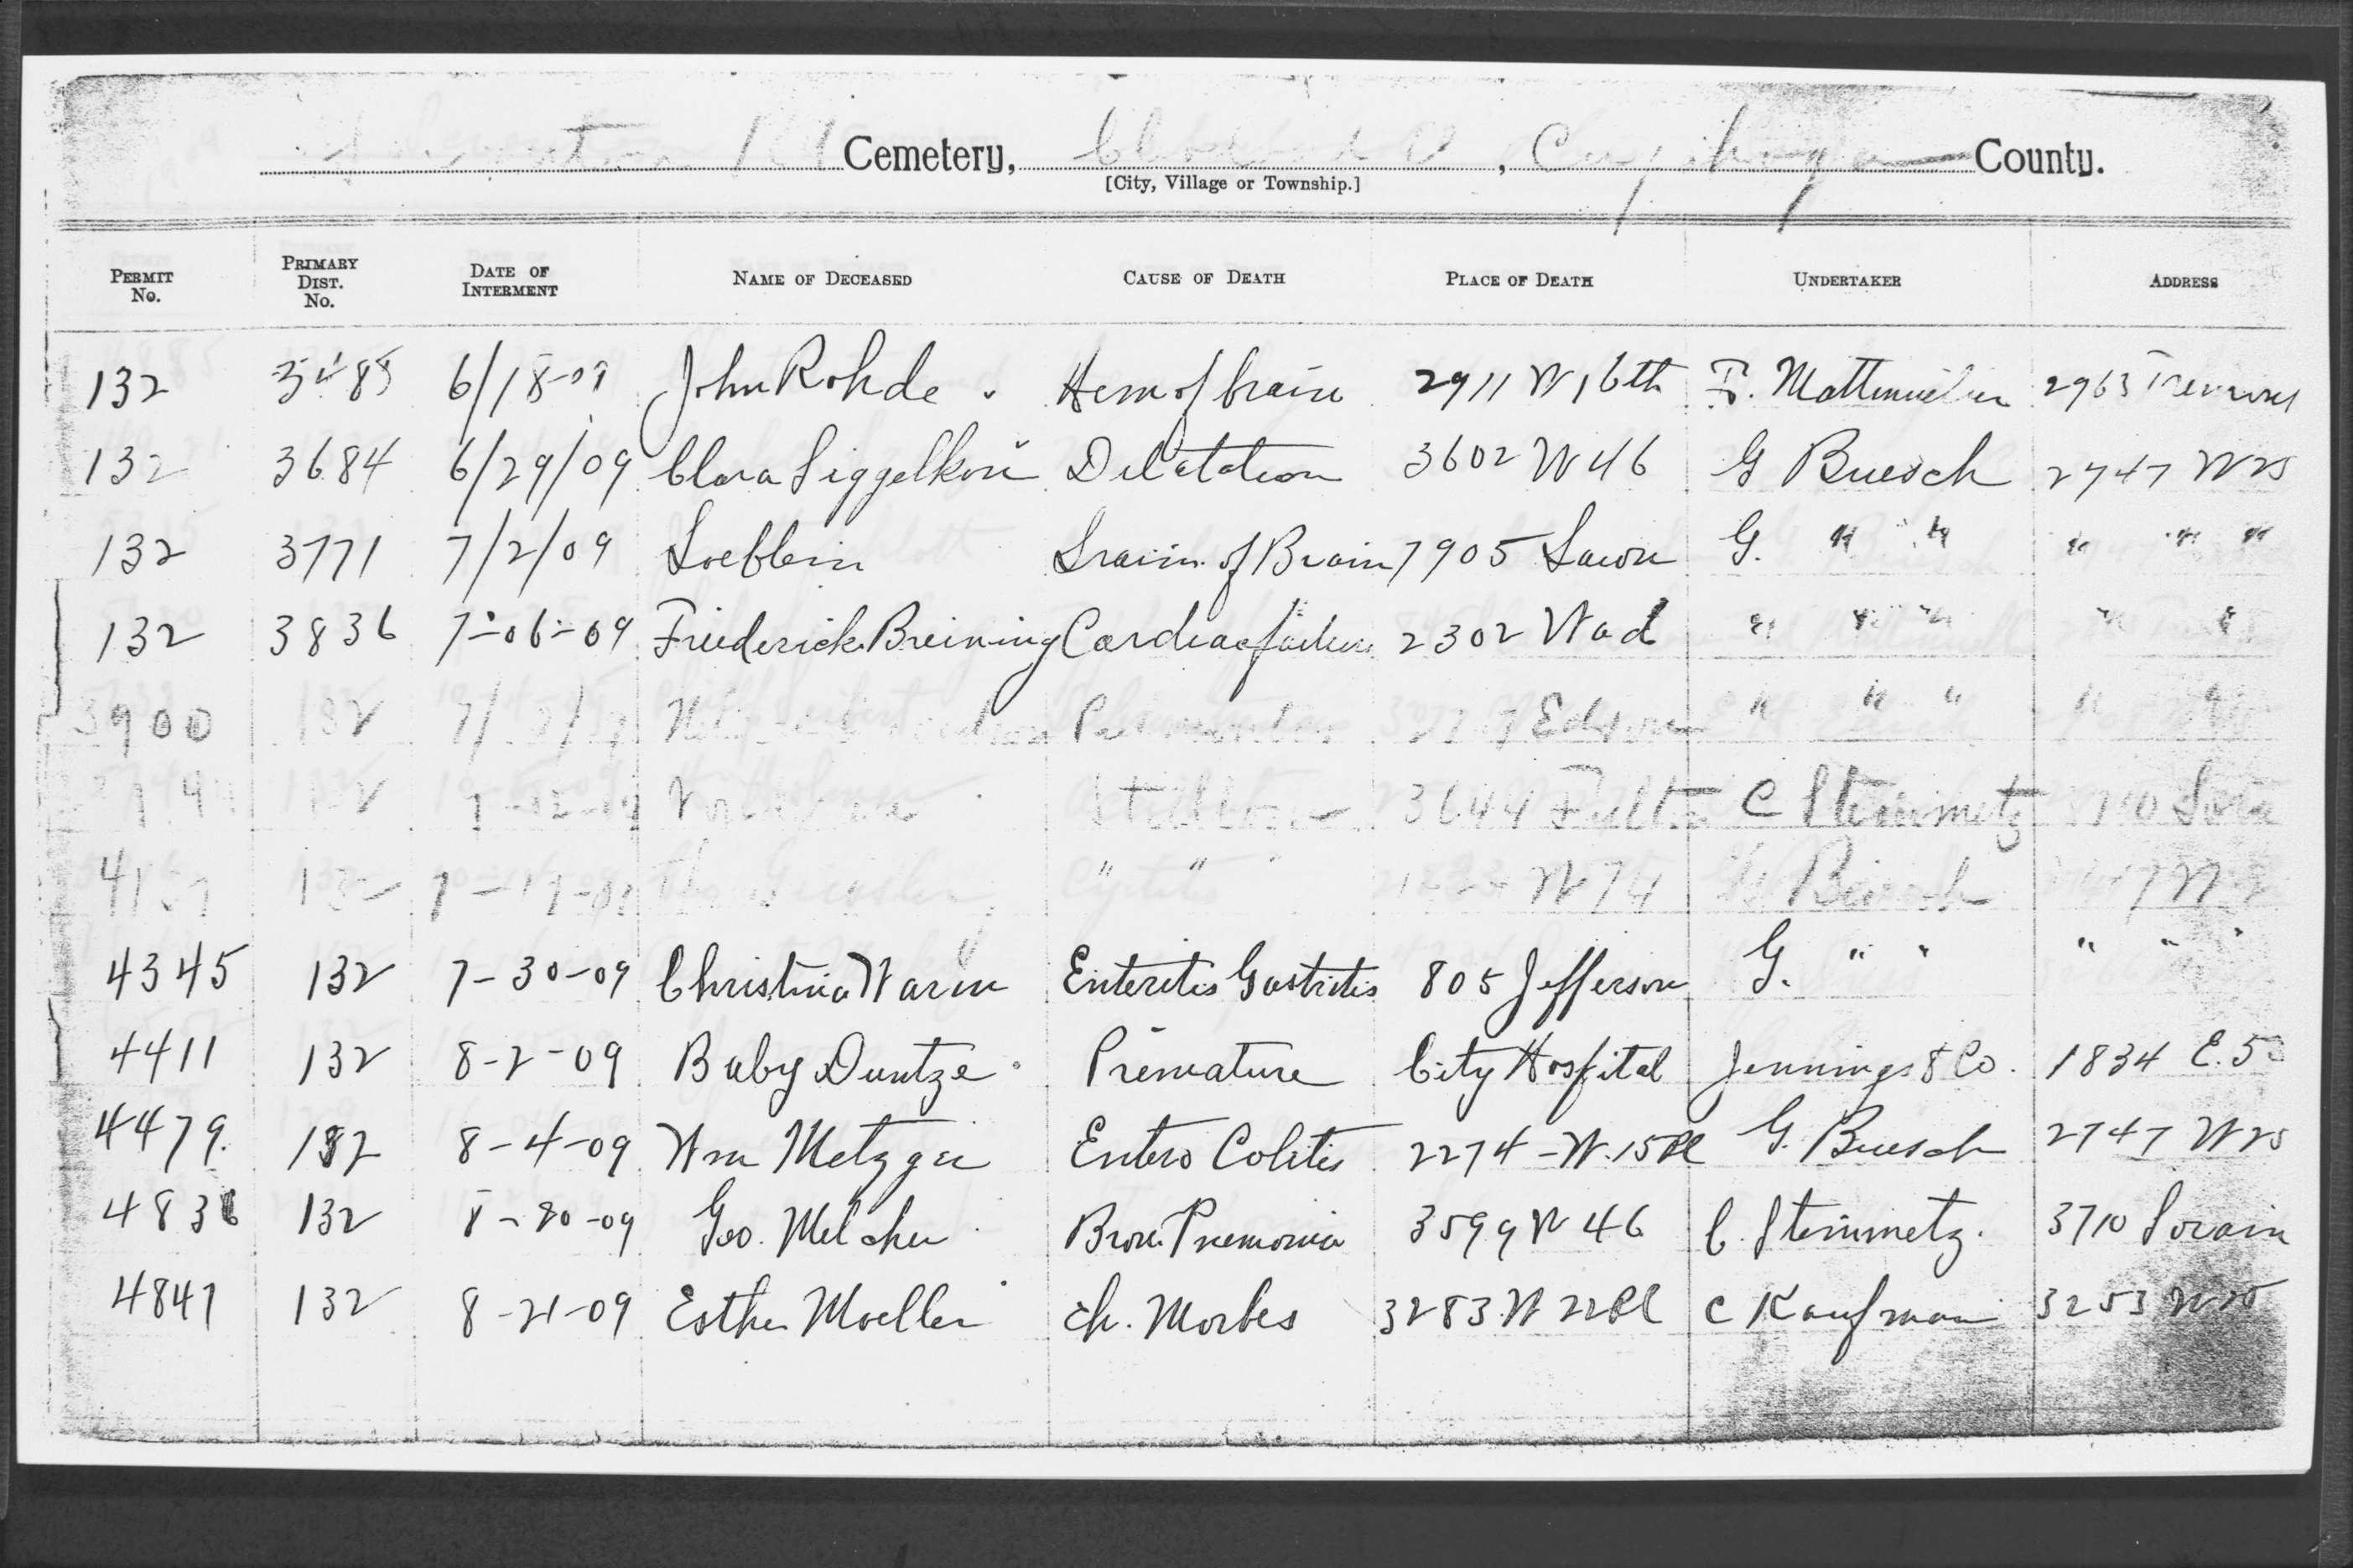 Cemetery, Cleveland O, Cuyahoga County.
[City, Village or Township.]
PERMIT No. PRIMARY DIST. No. DATE OF INTERMENT NAME OF DECEASED CAUSE OF DEATH PLACE OF DEATH UNDERTAKER ADDRESS
132 6/18-09 John Rohde Hem of brain 2911 W 16th F. 2963
132 3684 6/29/09 Clara Siggelkow Dilatation 3602 W 46 G Buesch 2747 W 25
132 3771 7/2/09 Loeblein of Brain 7905 Lawn G. " " " " "
132 3836 7-06-09 Friederick Breining Cardiac failure 2302 Wad " " " " "
3900 132 " " " " "
132 Stillborn 3644 Fulton C Steinmetz 3710
132 " " W 74 Buesch
4345 132 7-30-09 Christina Warm Enteritis Gastritis 805 Jefferson G. " " " " "
4411 132 8-2-09 Baby Duntze Premature City Hospital Jennings & Co. 1834 E. 55
4479 132 8-4-09 Wm Metzger Entero Colitis 2274 - W. 15 Pl G. Buesch 2747 W 25
4836 132 8-20-09 Geo. Melcher Bron. Pnemonia 3599 W 46 C. Steinmetz. 3710 Lorain
4847 132 8-21-09 Esther Moeller Ch. Morbes 3283 W 22 Pl C Kaufman 3253 W 25